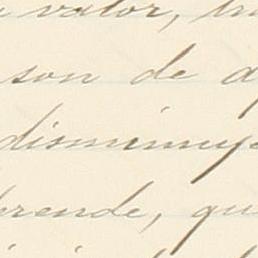 valor,
son de
disminuye
prende, qu